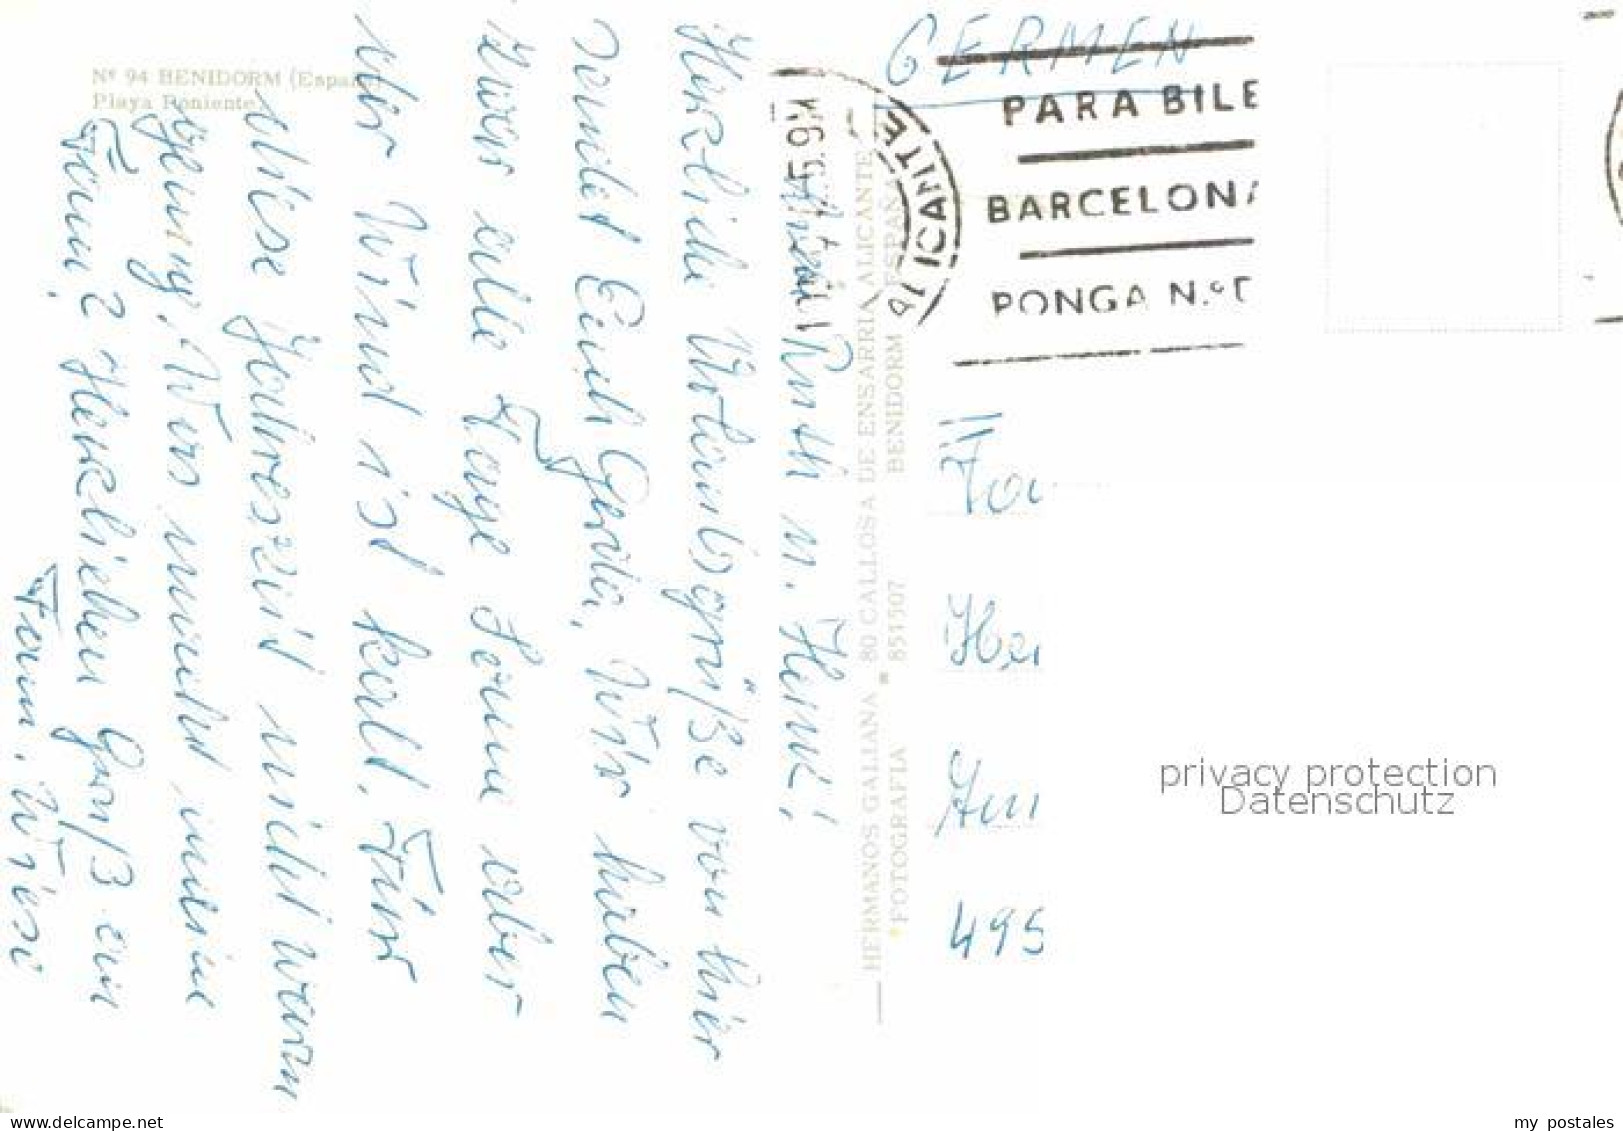 Nº 94 BENIDORM (España
Playa Poniente
Ruth u. Heini!
Herzliche Urlaubsgrüße von hier
sendet Euch Gerda, Wir haben
zwar alle Tage Sonne aber
der Wind ist kalt. Für
diese Jahreszeit nicht warm
genug. Was macht meine
Fam? Herzlichen Gruß an
Fam.
HERMANOS GALIANA 80 CALLOSA DE ENSARRIA ALICANTE
FOTOGRAFIA ■ 851507 BENIDORM ESPAÑA
GERMEN
ALICANTE
PARA BILB
BARCELONA
PONGA N.º D
Fa
He
495
privacy protection
Datenschutz
www.delcampe.net
my_postales